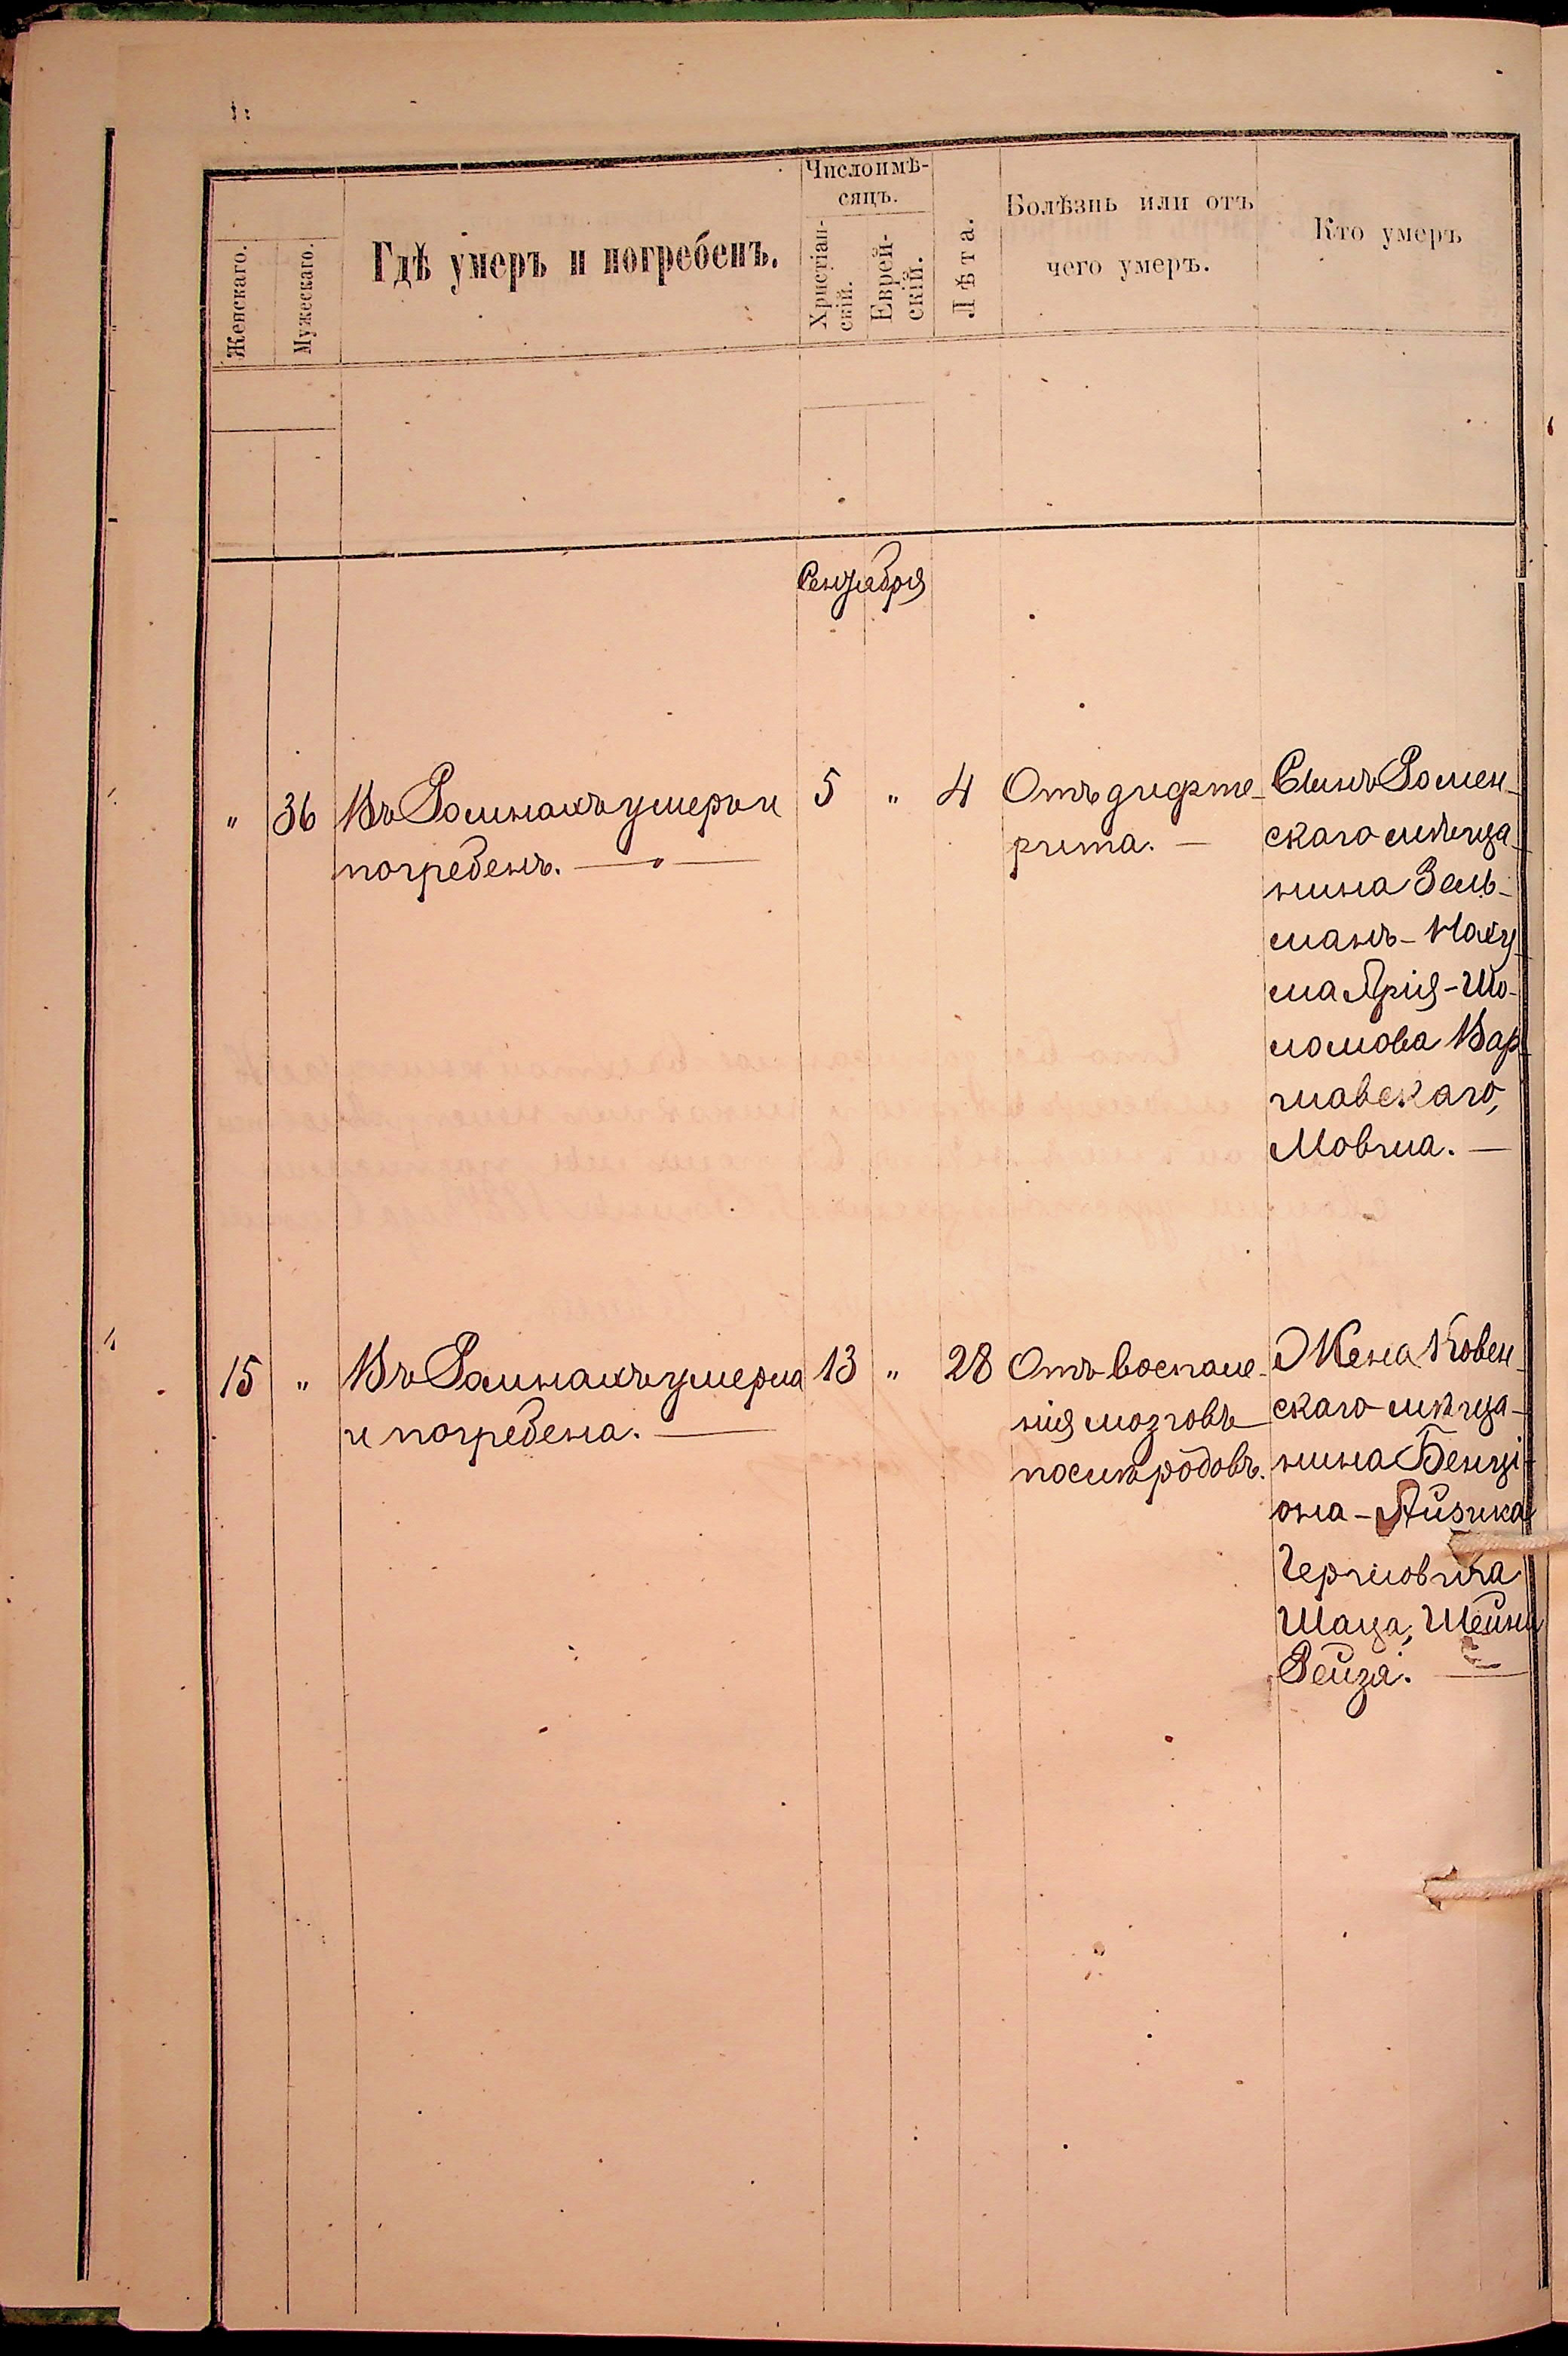 Женскаго.
Мужескаго.
Гдѣ умеръ и погребенъ.
Число и мѣ-
сяцъ.
Христіан-
скій.
Еврей-
скій.
Лѣта.
Болѣзнь или отъ
чего умеръ.
Кто умеръ
Сентября
" 36 Въ Ромнахъ умеръ и
погребенъ. —
5 " 4
Отъ дифте-
рита. —
Сынъ Ромен-
скаго мѣща-
нина Зель-
манъ-Наху-
ма Арія-Шо-
ломова Вар-
шавскаго,
Мовша. —
15 " Въ Ромнахъ умерла
и погребена. —
13 " 28
Отъ воспале-
нія мозговъ
послѣ родовъ.
Жена Ковен-
скаго мѣща-
нина Бенці-
она-Айзика
Шаца, Шейна
Рейза. —